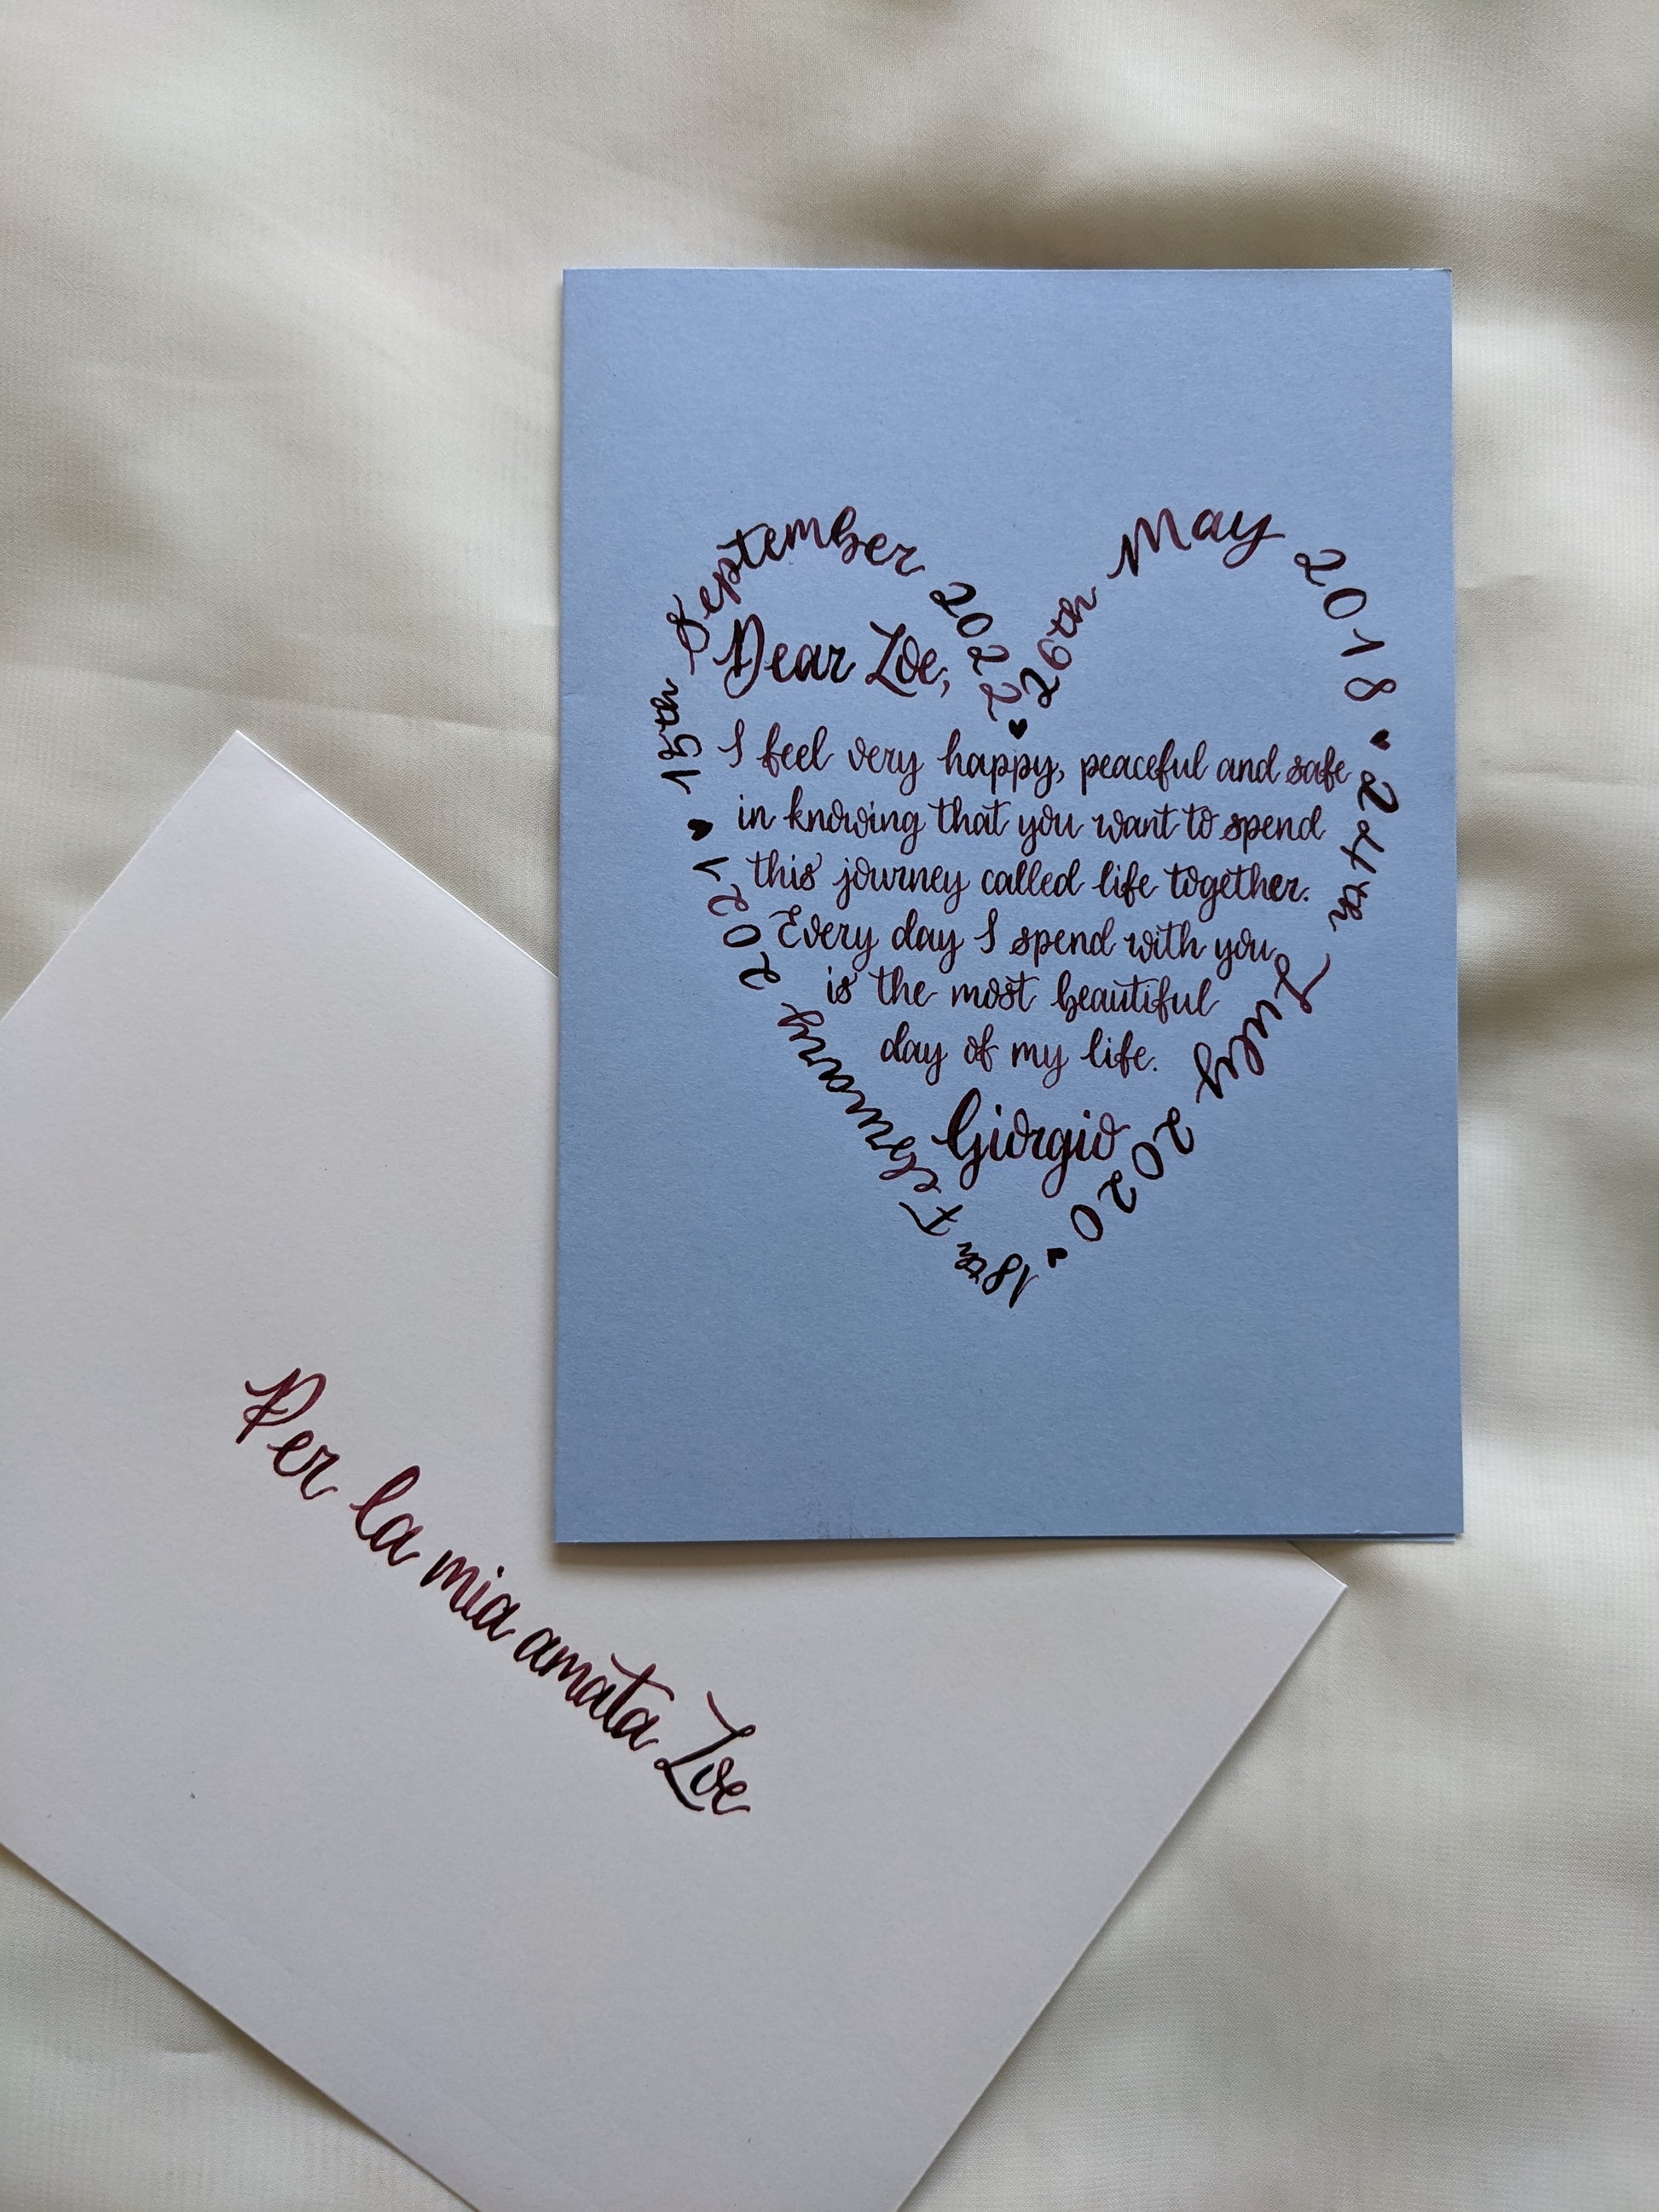 26th May 2018 ♥ 24th July 2020 ♥ 18th February 2021 ♥ 15th September 2022 ♥
Dear Zoe,
I feel very happy, peaceful and safe
in knowing that you want to spend
this journey called life together.
Every day I spend with you
is the most beautiful
day of my life.
Giorgio
Per la mia amata Zoe